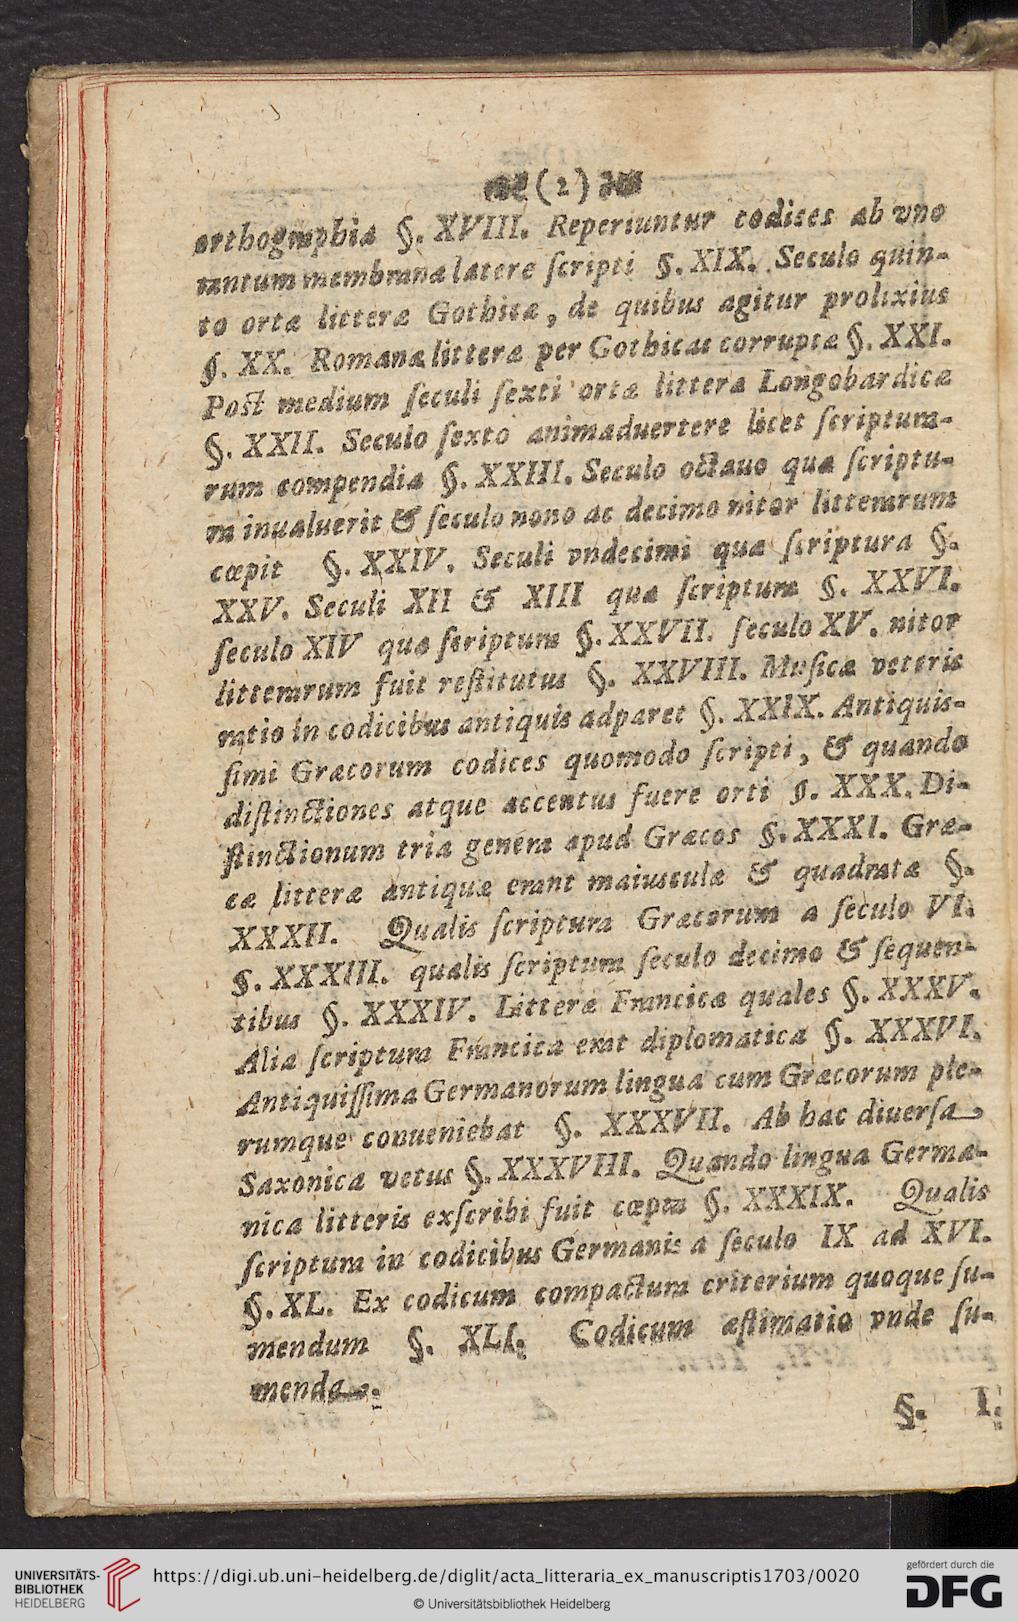 ( 2 )
orthographia §. XVIII. Reperiuntur codises ab vno
tantum membranæ latere ſcripti §. XIX. Seculo quin-
to ortæ litteræ Gothicæ, de quibus agitur prolixius
§. XX. Romanæ litteræ per Gothicas corruptæ §. XXI.
Poſt medium ſeculi ſexti ortæ litteræ Longobardicæ
§. XXII. Seculo ſexto animaduertere licet ſcriptura-
rum compendia §. XXIII. Seculo octauo quæ ſcriptu-
ra inualuerit & ſeculo nono ac decimo nitor litterarum
cœpit §. XXIV. Seculi vndecimi quæ ſcriptura §.
XXV. Seculi XII & XIII quæ ſcriptura §. XXVI.
ſeculo XIV quæ ſcriptura §. XXVII. ſeculo XV. nitor
litterarum fuit reſtitutus §. XXVIII. Muſicæ veteris
ratio in codicibus antiquis adparet §. XXIX. Antiquis-
ſimi Græcorum codices quomodo ſcripti, & quando
diſtinctiones atque accentus fuere orti §. XXX. Di-
ſtinctionum tria genera apud Græcos §. XXXI. Græ-
cæ litteræ antiquæ erant maiusculæ & quadratæ §.
XXXII. Qualis ſcriptura Græcorum a ſeculo VI.
§. XXXIII. qualis ſcriptura ſeculo decimo & ſequen-
tibus §. XXXIV. Litteræ Francicæ quales §. XXXV.
Alia ſcriptura Francica erat diplomatica §. XXXVI.
Antiquiſſima Germanorum lingua cum Græcorum ple-
rumque conueniebat §. XXXVII. Ab hac diuerſa
Saxonica vetus §. XXXVIII. Quando lingua Germa-
nica litteris exſcribi fuit cœpta §. XXXIX. Qualis
ſcriptura in codicibus Germanis a ſeculo IX ad XVI.
§. XL. Ex codicum compactura criterium quoque ſu-
mendum §. XLI. Codicum æſtimatio vnde ſu-
menda.
§. I.
UNIVERSITÄTS-
BIBLIOTHEK
HEIDELBERG
https://digi.ub.uni-heidelberg.de/diglit/acta_litteraria_ex_manuscriptis1703/0020
© Universitätsbibliothek Heidelberg
gefördert durch die
DFG